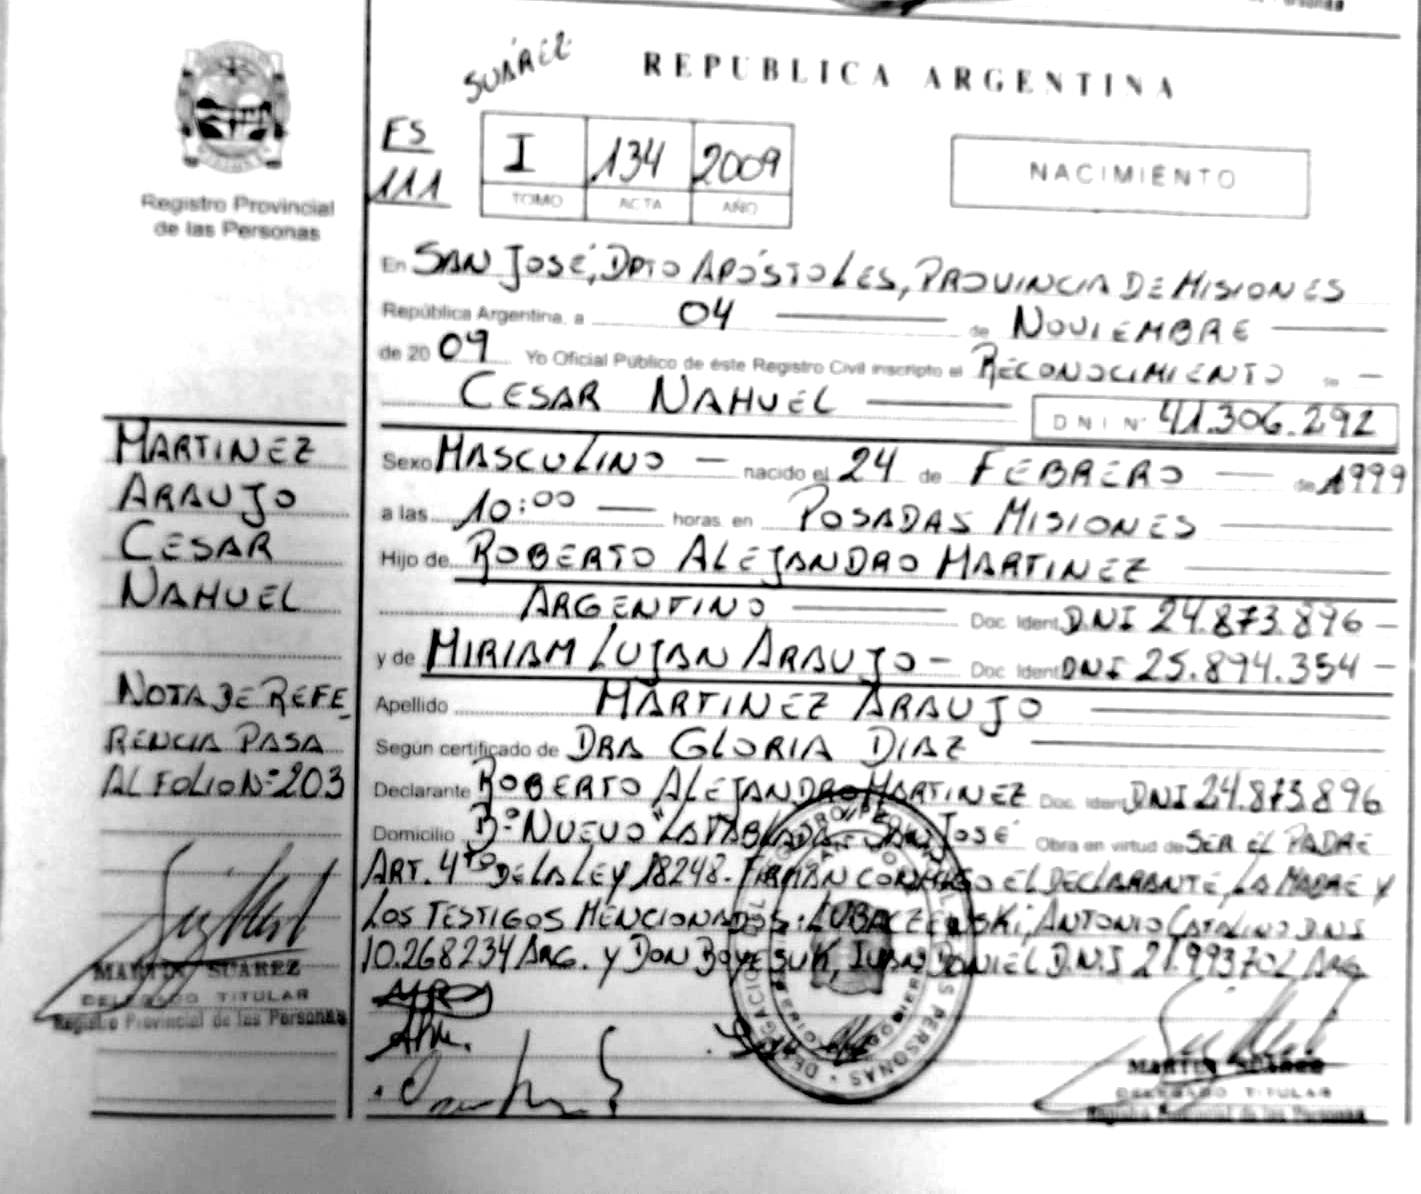 SUÁREZ
REPUBLICA ARGENTINA
FS
111
I 134 2009
TOMO ACTA AÑO
NACIMIENTO
Registro Provincial
de las Personas
En SAN JOSÉ, DPTO APÓSTOLES, PROVINCIA DE MISIONES
República Argentina, a 04 de NOVIEMBRE
de 20 09 Yo Oficial Público de éste Registro Civil inscripto el RECONOCIMIENTO de
CESAR NAHUEL
DNI Nº 41.306.292
Sexo MASCULINO — nacido el 24 de FEBRERO — de 1999
a las 10:00 — horas en POSADAS MISIONES
Hijo de ROBERTO ALEJANDRO MARTINEZ
ARGENTINO — Doc. Ident. DNI 24.873.896 —
y de MIRIAM LUJAN ARAUJO — Doc. Ident. DNI 25.894.354 —
Apellido MARTINEZ ARAUJO
Según certificado de DRA GLORIA DIAZ
Declarante ROBERTO ALEJANDRO MARTINEZ Doc. Ident. DNI 24.873.896
Domicilio Bº NUEVO "LA TABLADA" SAN JOSÉ Obra en virtud de SER EL PADRE
ART. 4to DE LA LEY 18248. FIRMAN CONMIGO EL DECLARANTE, LA MADRE Y
LOS TESTIGOS MENCIONADOS: LUBACZEWSKI, ANTONIO CATALINO D.N.I
10.268234 ARG. Y DON BOYESUK, IVAN DANIEL D.N.I 21.993702 ARG
MARTINEZ
ARAUJO
CESAR
NAHUEL
NOTA DE REFE
RENCIA PASA
AL FOLIO Nº 203
MARTIN SUAREZ
DELEGADO TITULAR
Registro Provincial de las Personas
MARTIN SUAREZ
DELEGADO TITULAR
Registro Provincial de las Personas